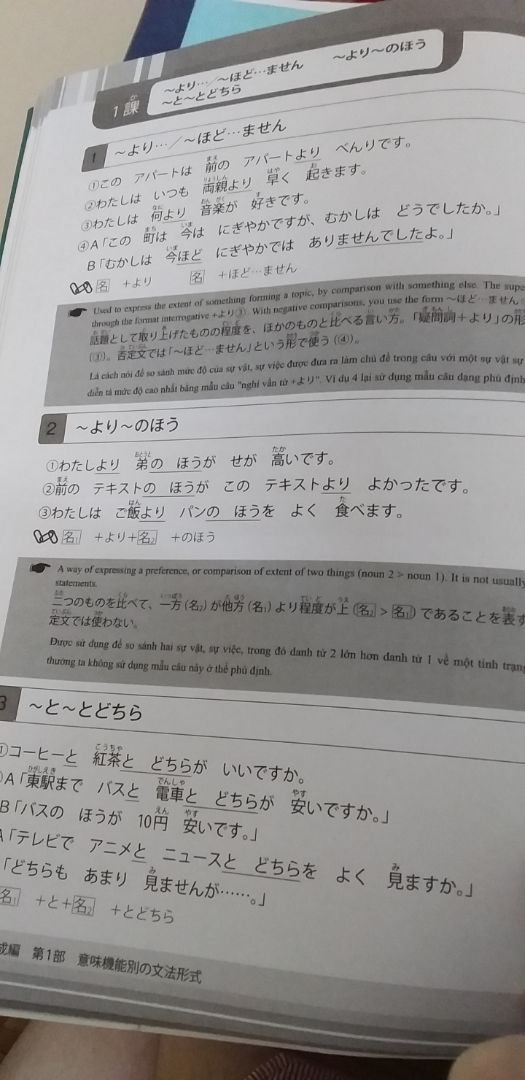 1課
～より…/～ほど…ません　～より～のほう
～と～とどちら
1 ～より…/～ほど…ません
①この アパートは 前の アパートより べんりです。
②わたしは いつも 両親より 早く 起きます。
③わたしは 何より 音楽が 好きです。
④A「この 町は 今は にぎやかですが、むかしは どうでしたか。」
B「むかしは 今ほど にぎやかでは ありませんでしたよ。」
名 ＋より　名 ＋ほど…ません
Used to express the extent of something forming a topic, by comparison with something else. The supe
through the format interrogative +より③. With negative comparisons, you use the form ～ほど…ません
話題として取り上げたものの程度を、ほかのものと比べる言い方。「疑問詞＋より」の形
(③)。否定文では「～ほど…ません」という形で使う (④)。
Là cách nói để so sánh mức độ của sự vật, sự việc được đưa ra làm chủ đề trong câu với một sự vật sự
diễn tả mức độ cao nhất bằng mẫu câu "nghi vấn từ +より". Ví dụ 4 lại sử dụng mẫu câu dạng phủ định
2 ～より～のほう
①わたしより 弟の ほうが せが 高いです。
②前の テキストの ほうが この テキストより よかったです。
③わたしは ご飯より パンの ほうを よく 食べます。
名1 ＋より＋名2 ＋のほう
A way of expressing a preference, or comparison of extent of two things (noun 2 > noun 1). It is not usually
statements.
二つのものを比べて、一方 (名2) が他方 (名1) より程度が上 (名2 > 名1) であることを表す
定文では使わない。
Được sử dụng để so sánh hai sự vật, sự việc, trong đó danh từ 2 lớn hơn danh từ 1 về một tính trạng
thường ta không sử dụng mẫu câu này ở thể phủ định.
3 ～と～とどちら
①コーヒーと 紅茶と どちらが いいですか。
A「東駅まで バスと 電車と どちらが 安いですか。」
B「バスの ほうが 10円 安いです。」
A「テレビで アニメと ニュースと どちらを よく 見ますか。」
「どちらも あまり 見ませんが……。」
名1 ＋と＋名2 ＋とどちら
成編 第1部 意味機能別の文法形式